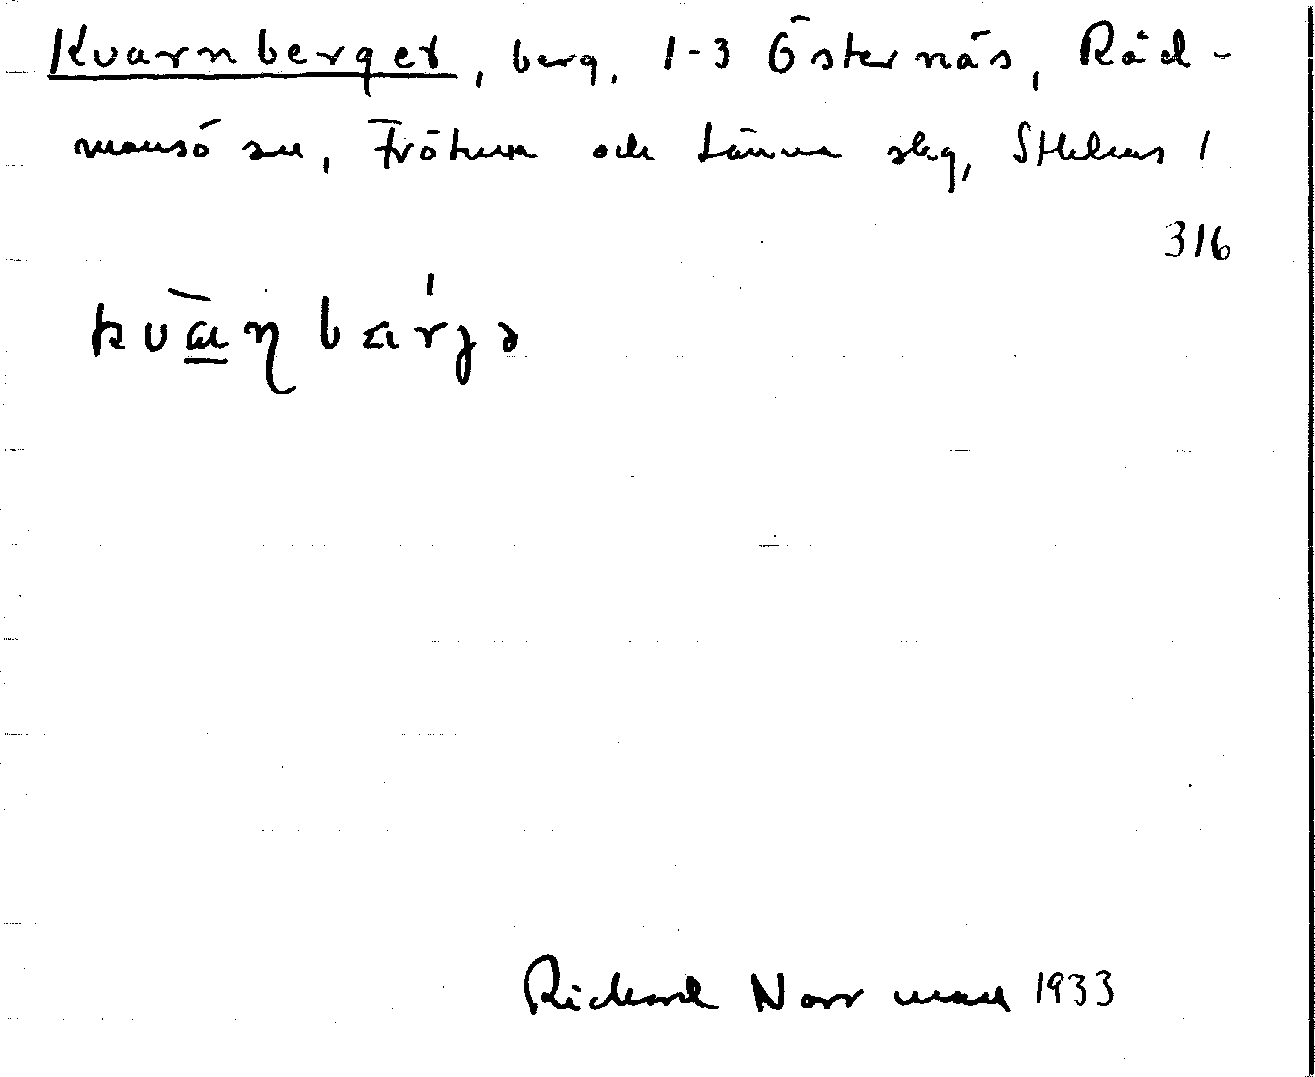 Kvarnberget, berg, 1-3 Östernäs, Råd-
mansö sn, Frötuna och Länna slg, Sthlms l
316
kvàɳbærjə
Richard Norrman 1933